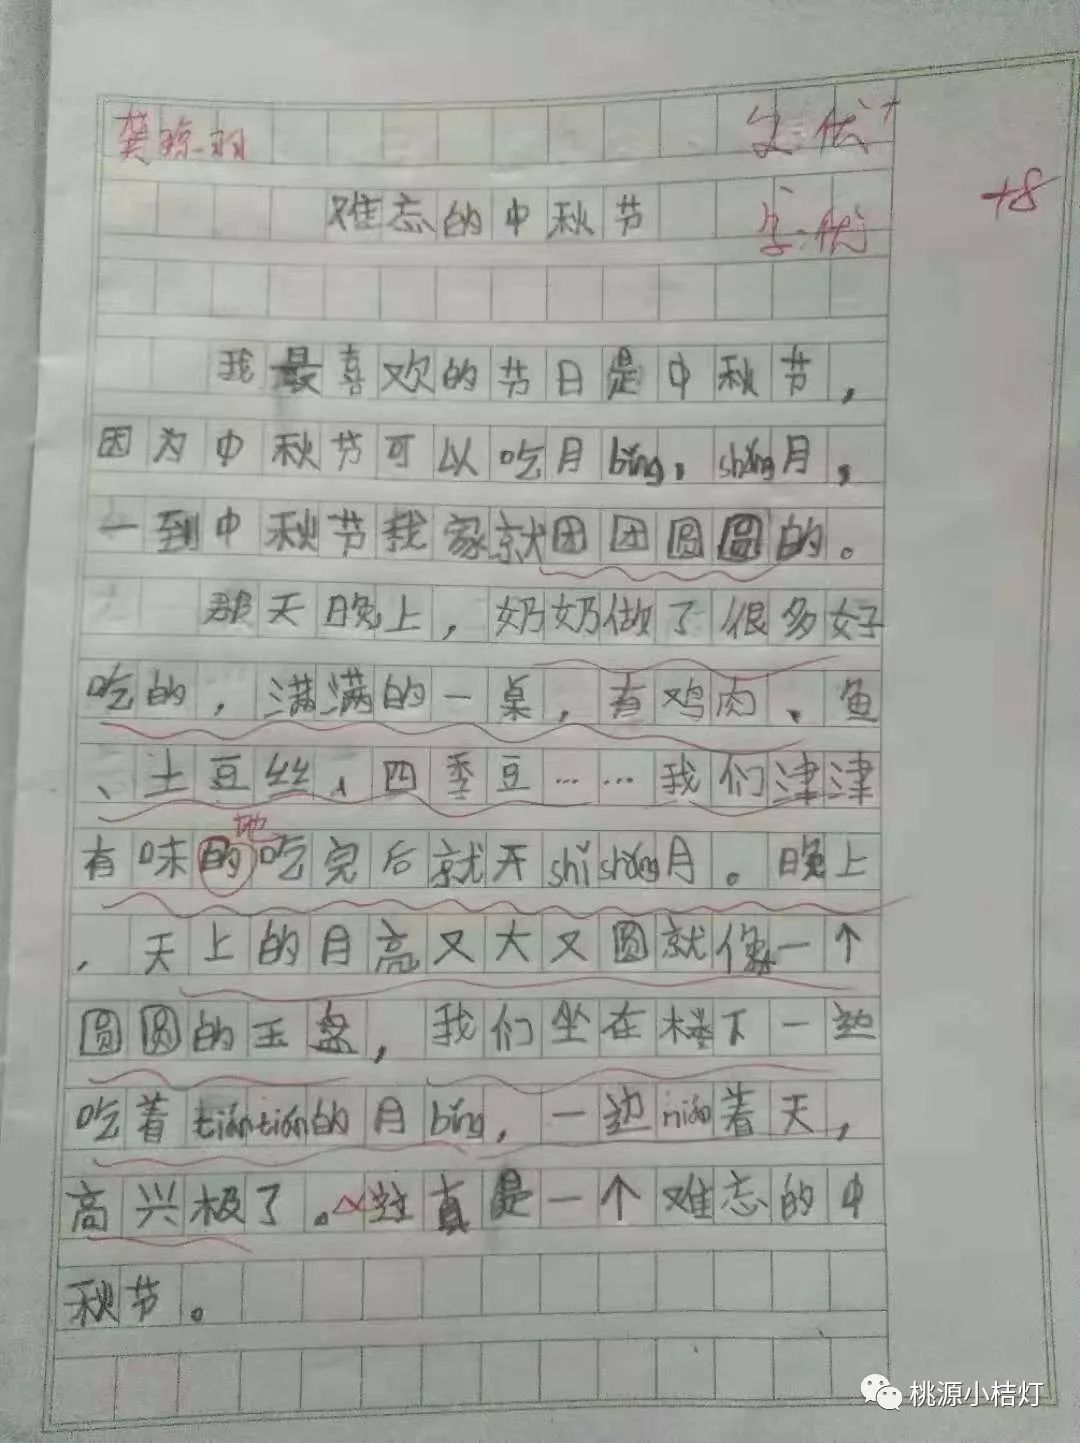 龚琼羽 文:优+
难忘的中秋节 字:优 +8
我最喜欢的节日是中秋节，
因为中秋节可以吃月bǐng，shǎng月，
一到中秋节我家就团团圆圆的。
那天晚上，奶奶做了很多好
吃的，满满的一桌，有鸡肉、鱼
、土豆丝、四季豆……我们津津
有味的地吃完后就开shǐshǎng月。晚上
，天上的月亮又大又圆就像一个
圆圆的玉盘，我们坐在楼下一边
吃着tiántián的月bǐng，一边niào着天，
高兴极了。这真是一个难忘的中
秋节。
桃源小桔灯